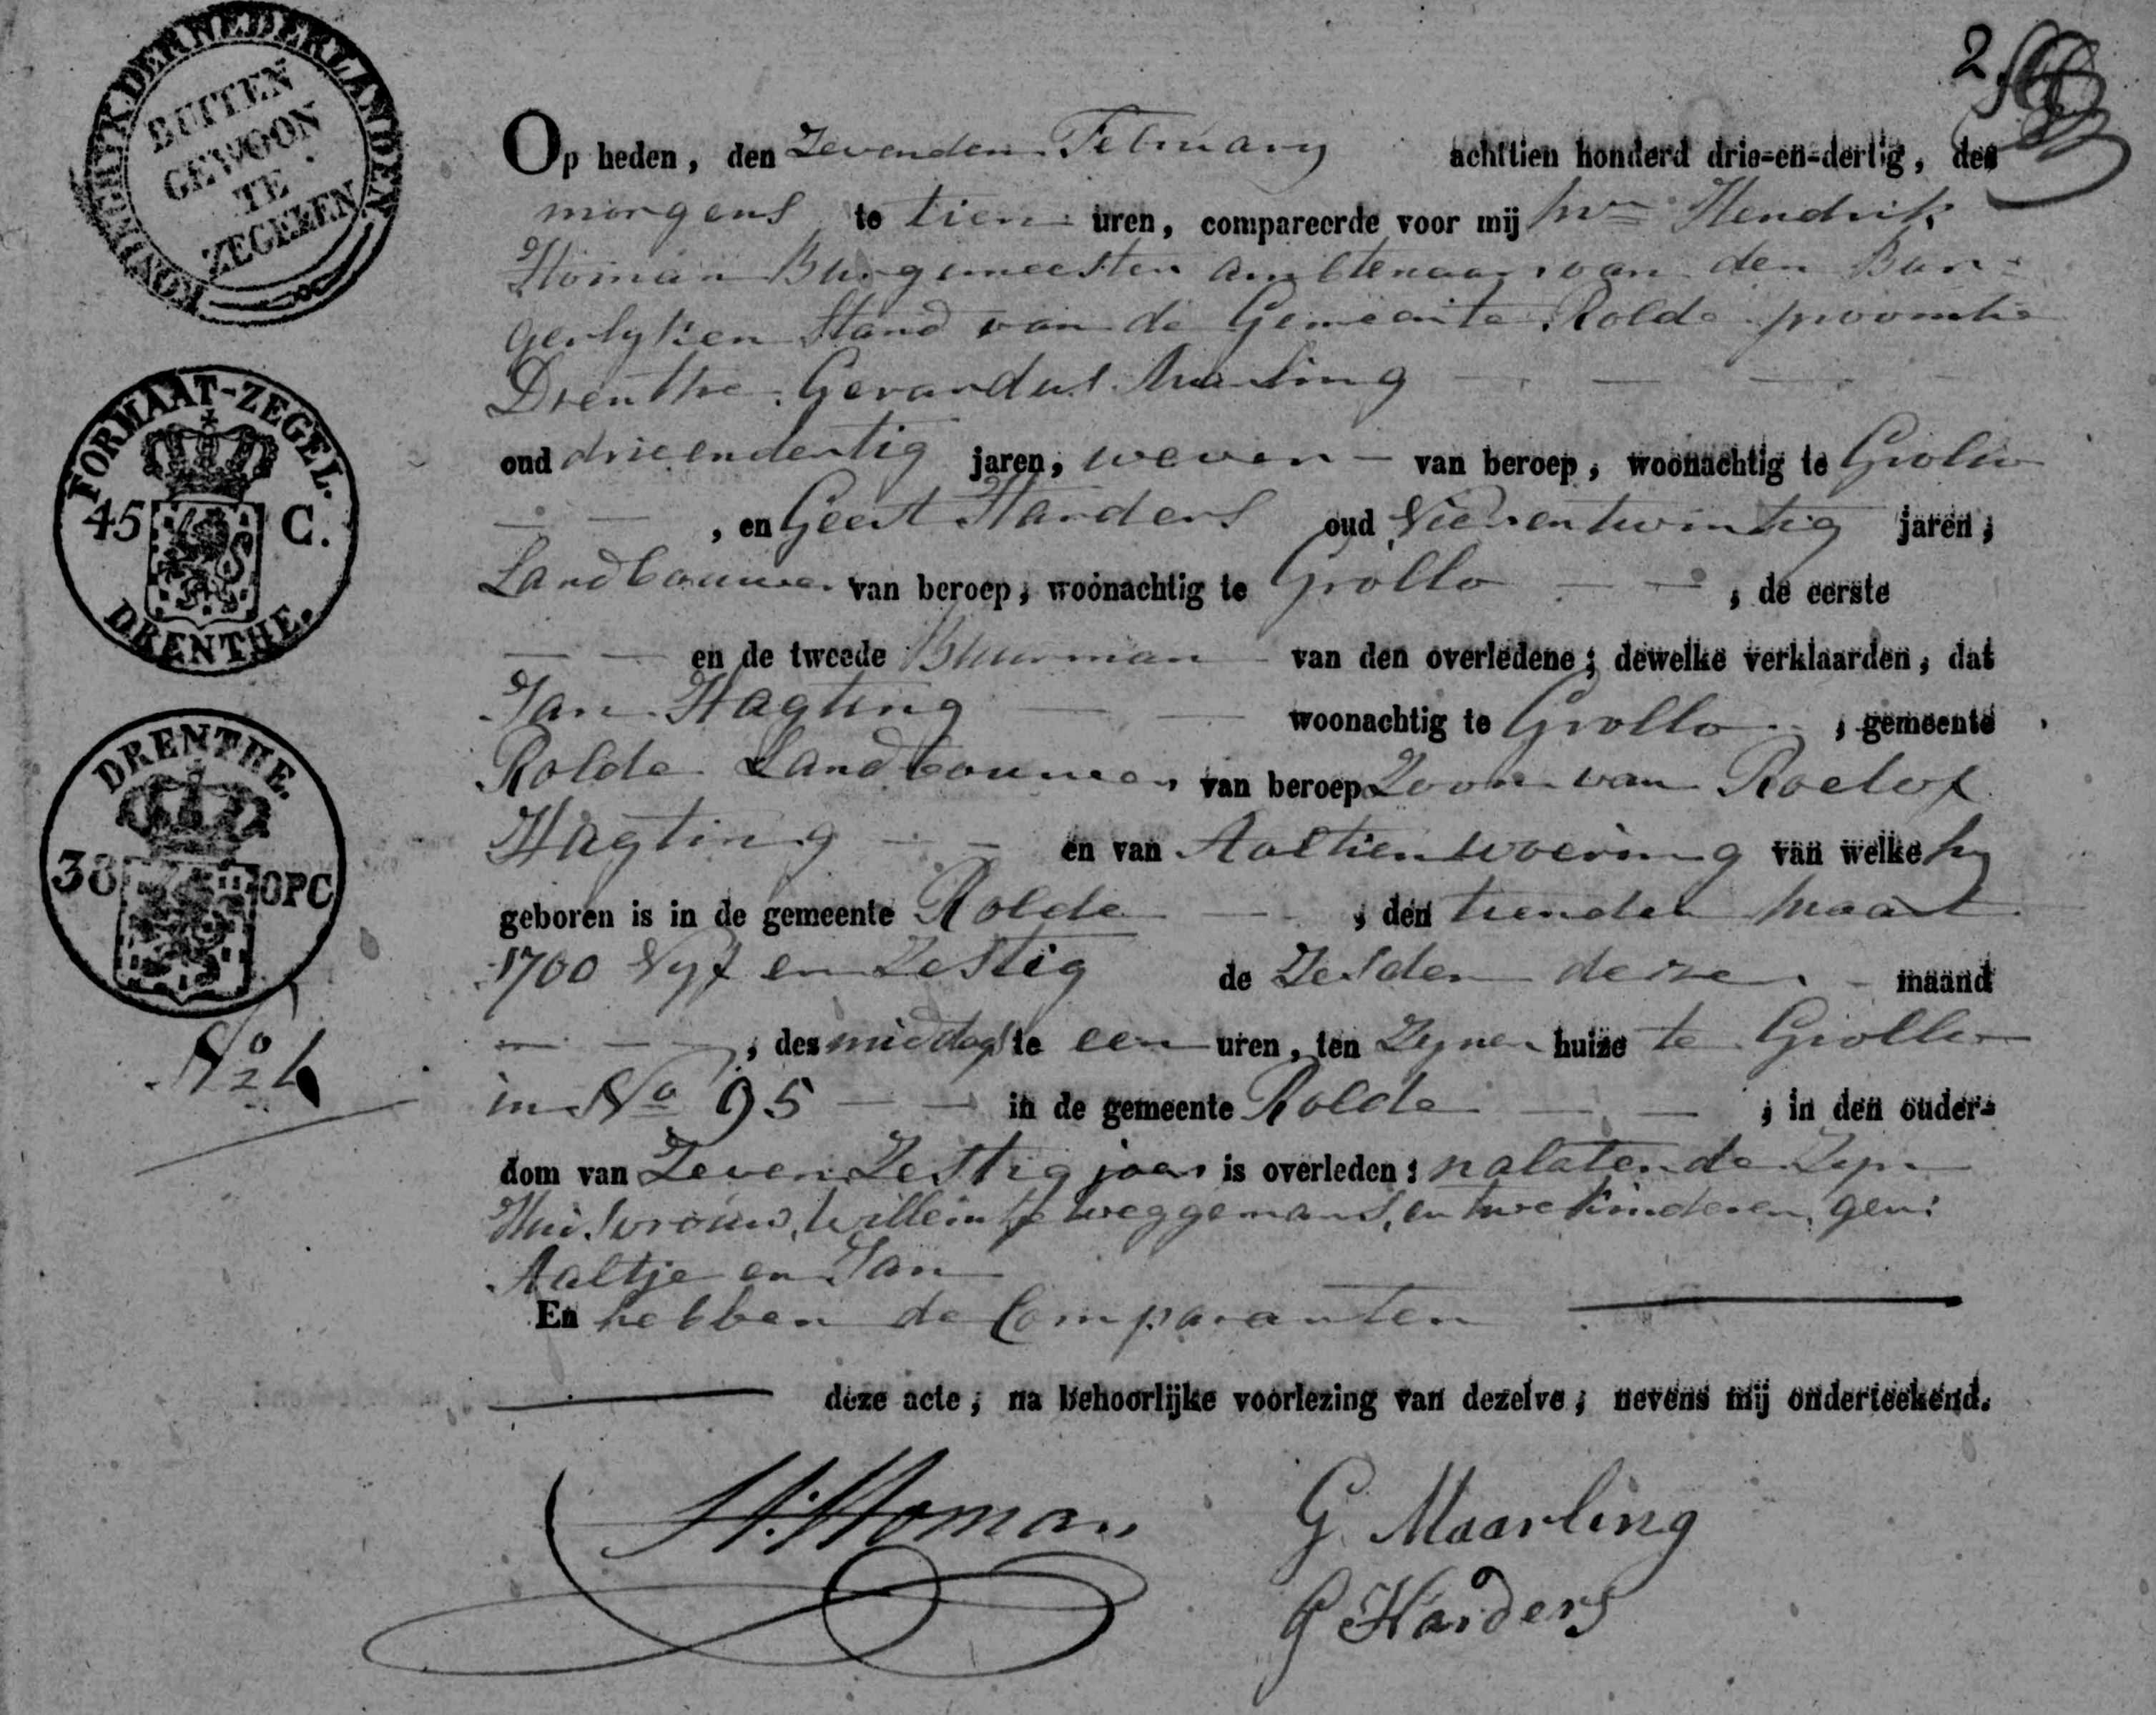 KONINGRIJK DER NEDERLANDEN
BUITEN
GEWOON
TE
ZEGELEN
FORMAAT-ZEGEL.
45 C.
DRENTHE.
DRENTHE.
38 OPC
No 2
2
Op heden, den Zevenden February achttien honderd drie-en-dertig, des
morgens te tien uren, compareerde voor mij Hendrik
Homan Burgemeester ambtenaar van den Bur-
gerlyken Stand van de Gemeente Rolde provintie
Drenthe Gerardus Marling
oud drieendertig jaren, wever van beroep, woonachtig te Grollo
, en Geert Harders oud Vierentwintig jaren,
Landbouwer van beroep, woonachtig te Grollo , de eerste
en de tweede Buurman van den overledene; dewelke verklaarden, dat
Jan Hagting woonachtig te Grollo , gemeente
Rolde Landbouwer van beroep Zoon van Roelof
Hagting en van Aaltien Woering van welke hy
geboren is in de gemeente Rolde , den tienden Maart
1700 Vyf en Zestig de Zesden dezer maand
, des middags te een uren, ten Zynen huize te Grollo
in No 95 in de gemeente Rolde , in den ouder-
dom van Zeven Zestig jaar is overleden; nalatende Zyn
Huisvrouw, Willemtje Weggemans, en twe kinderen, gen:
Aaltje en Jan
En hebben de Comparanten
deze acte, na behoorlijke voorlezing van dezelve, nevens mij onderteekend.
H: Homan
G. Maarling
G Harders